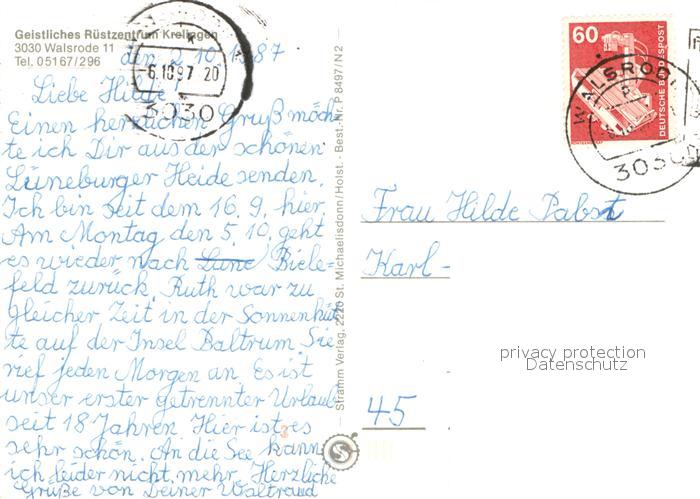 Geistliches Rüstzentrum Krelingen
3030 Walsrode 11
Tel. 05167/296
den 2.10.1987
-6.10.87 20
3030
Liebe Hilde!
Einen herzlichen Gruß möch-
te ich Dir aus der schönen
Lüneburger Heide senden.
Ich bin seit dem 16.9. hier.
Am Montag den 5.10. geht
es wieder nach Lüne Biele-
feld zurück. Ruth war zu
gleicher Zeit in der Sonnenhüt
te auf der Insel Baltrum. Sie
rief jeden Morgen an. Es ist
unser erster getrennter Urlaub
seit 18 Jahren. Hier ist es
sehr schön. An die See kann
ich leider nicht mehr. Herzliche
Grüße von Deiner Waltraud
Stramm Verlag, 2226 St. Michaelisdonn/Holst. - Best.-Nr. P 8497/N2 -
60
DEUTSCHE BUNDESPOST
WALSRODE
3030
Frau Hilde Pabst
Karl-
privacy protection
Datenschutz
45
S